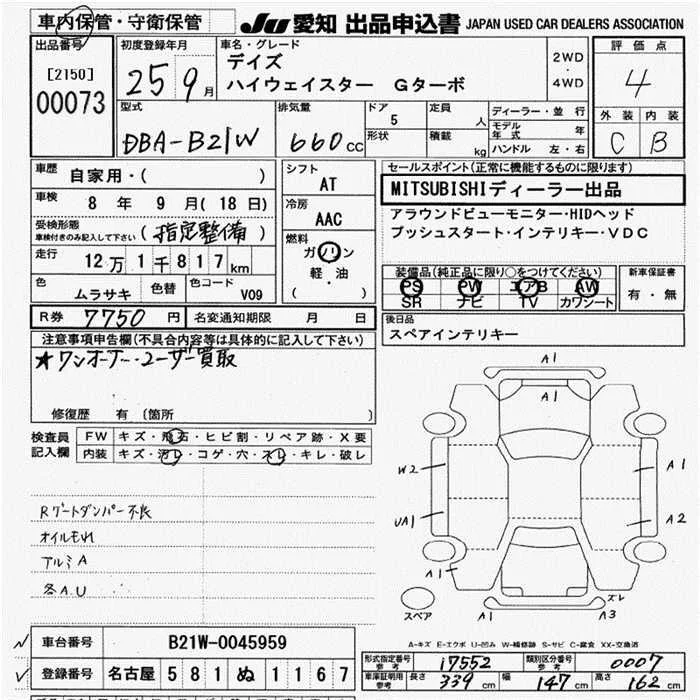 車内保管・守衛保管
Ju 愛知 出品申込書 JAPAN USED CAR DEALERS ASSOCIATION
出品番号
[2150]
00073
初度登録年月
25 9月
車名・グレード
デイズ
ハイウェイスター Gターボ
2WD
・
4WD
評価点
4
外装 内装
C B
型式
DBA-B21W
排気量
660cc
ドア
5
形状
定員
人
積載
kg
ディーラー・並行
モデル年式 年
ハンドル 左・右
車歴
自家用・( )
車検
8 年 9 月(18 日)
受検形態
車検付きのみ記入して下さい
(指定整備)
走行
12万1千817km
色
ムラサキ
色替
色コード
V09
シフト
AT
冷房
AAC
燃料
ガソリン
軽・油
( )
R券 7750円 名変通知期限 月 日
セールスポイント(正常に機能するものに限ります)
MITSUBISHIディーラー出品
アラウンドビューモニター・HIDヘッド
プッシュスタート・インテリキー・VDC
装備品(純正品に限り○をつけてください)
PS PW エアB AW
SR ナビ TV カワシート
新車保証書
有・無
後日品
スペアインテリキー
注意事項申告欄(不具合内容等は具体的に記入して下さい)
★ワンオーナー・ユーザー買取
修復歴 有 (箇所
検査員
記入欄
FW キズ・飛石・ヒビ割・リペア跡・X要
内装 キズ・汚レ・コゲ・穴・スレ・キレ・破レ
Rゲートダンパー不良
オイルもれ
アルミA
各A.U
A1
A1
W2
A1
UA1
A2
A1
スペア
A1
スレ
A3
A-キズ E-エクボ U-凹み W-補修跡 S-サビ C-腐食 XX-交換済
車台番号 B21W-0045959
登録番号 名古屋 581 ぬ 1167
形式指定番号
参考
17552
類別区分番号
参考
0007
車庫証明用
参考
長さ 339cm 幅 147cm 高さ 162cm